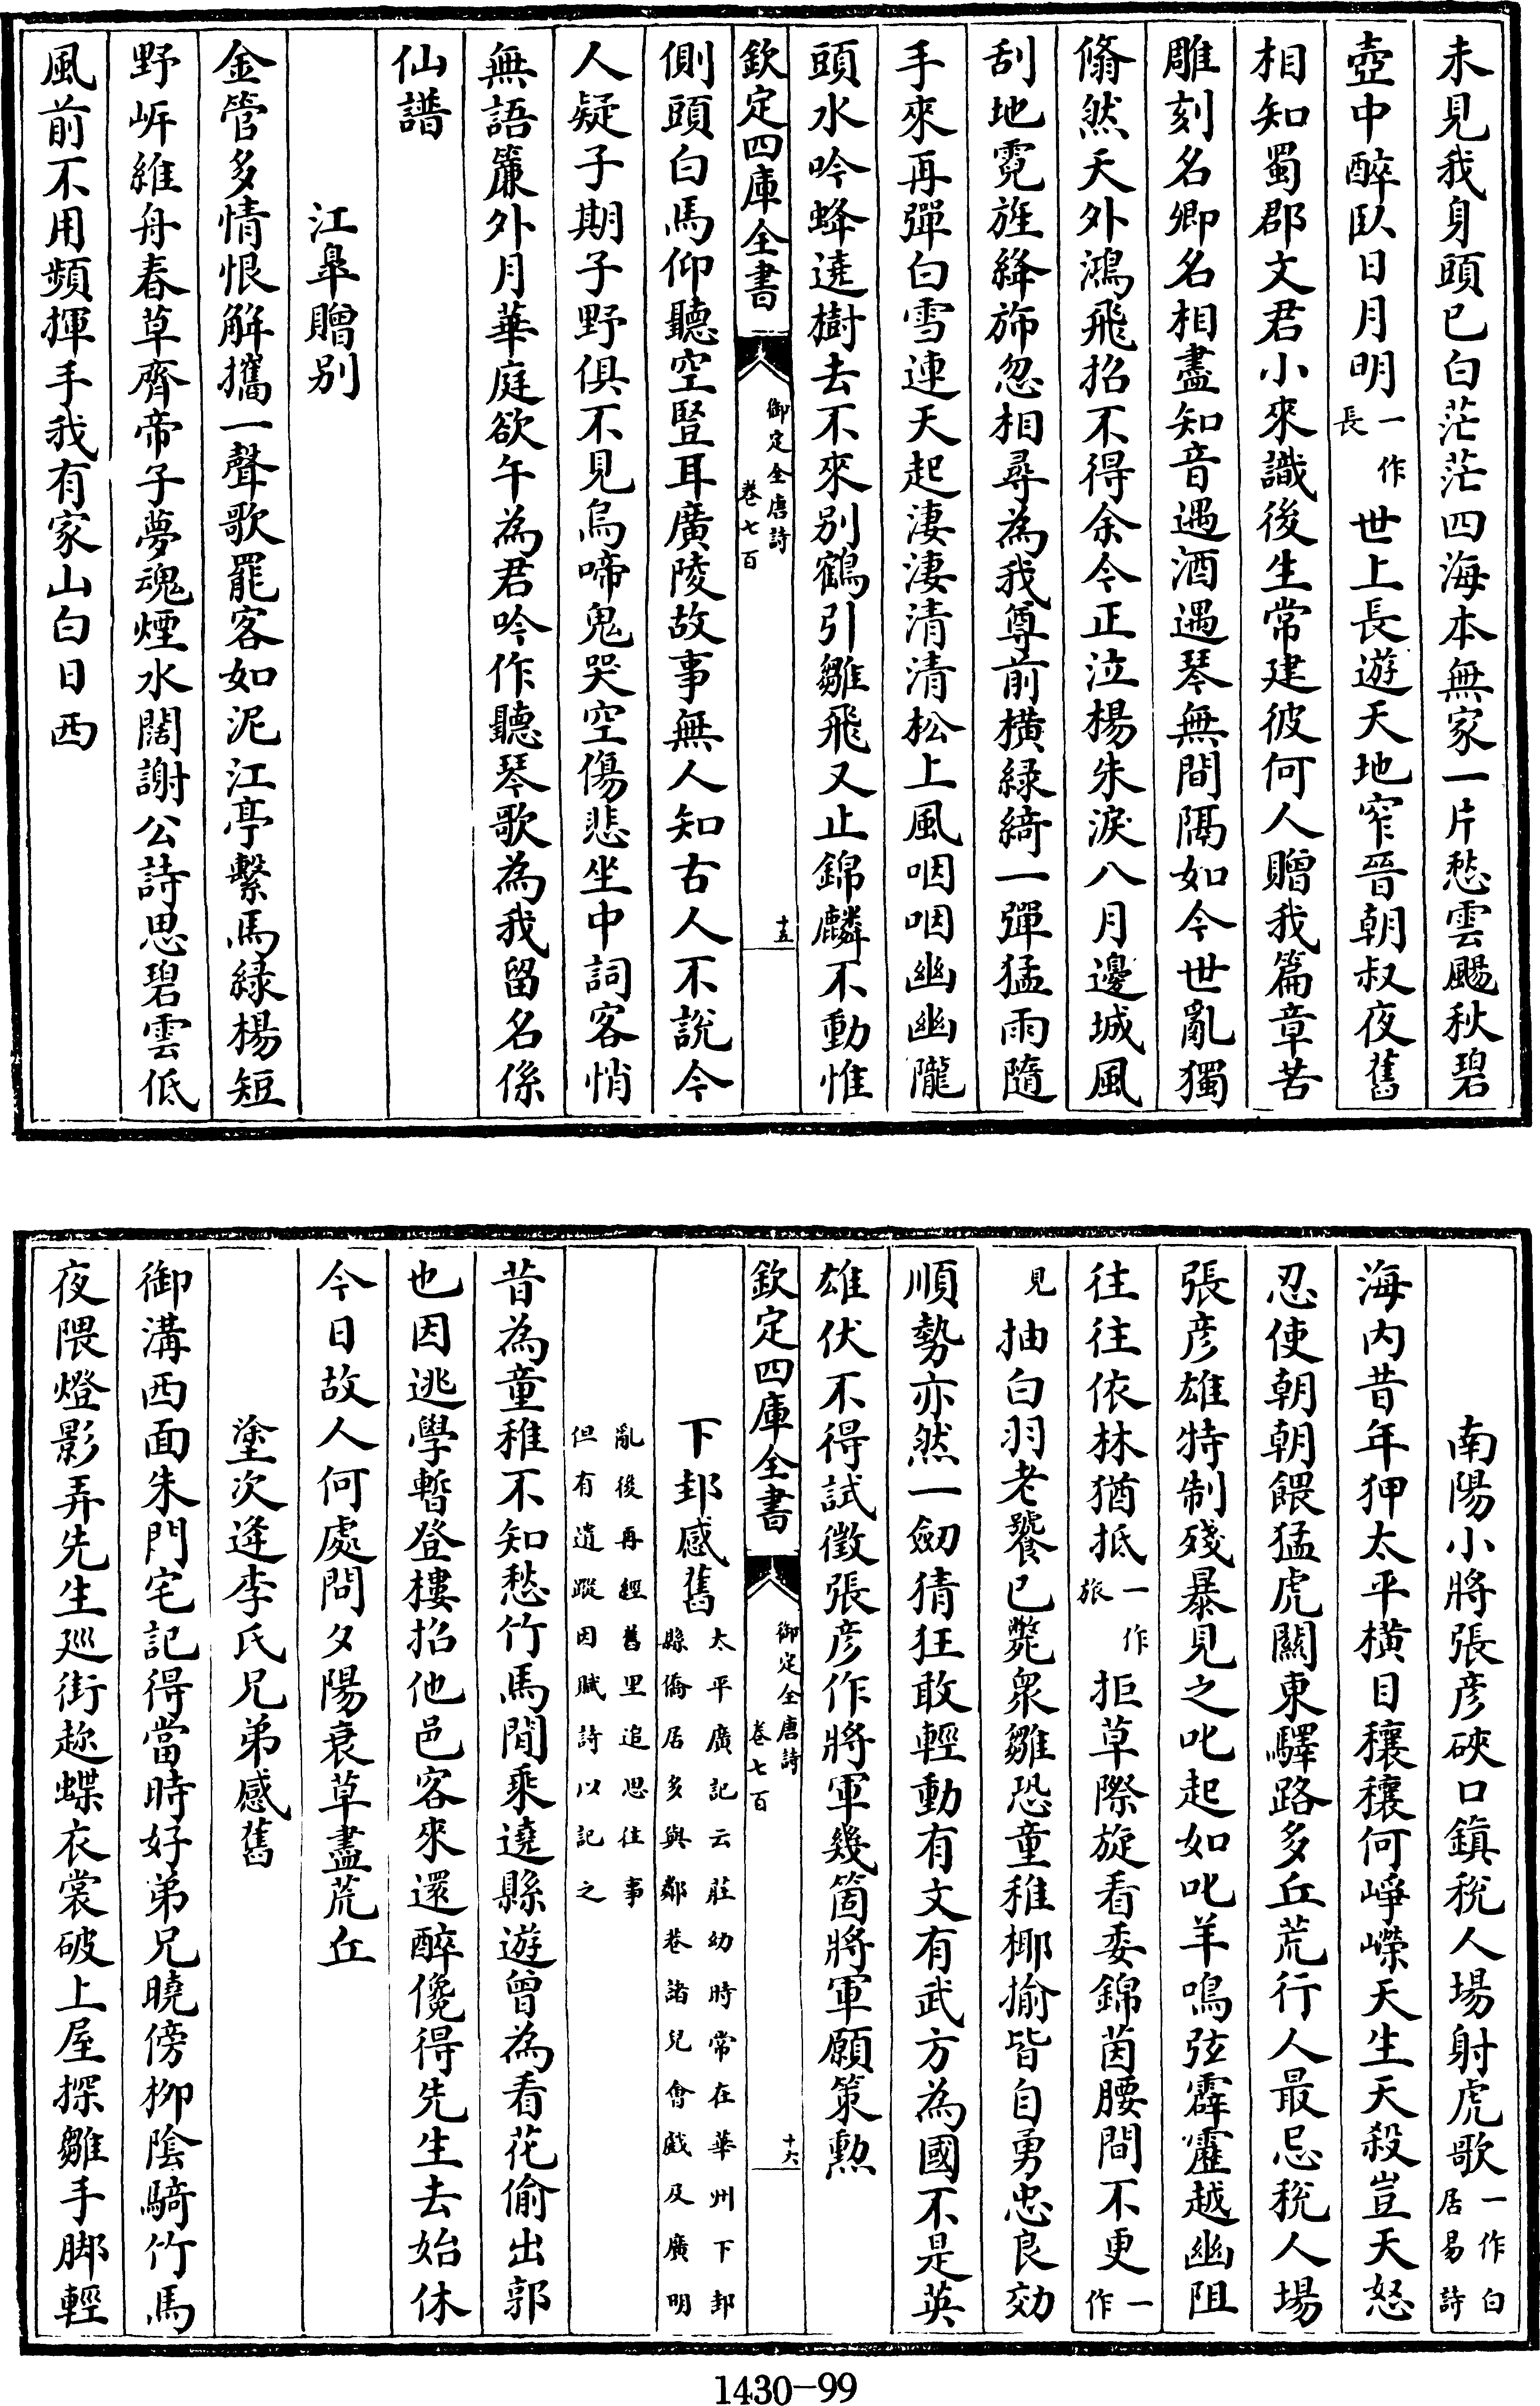 未見我身頭已白茫茫四海本無家一片愁雲颺秋碧
壺中醉臥日月明一作長世上長遊天地窄晉朝叔夜舊
相知蜀郡文君小來識後生常建彼何人贈我篇章苦
雕刻名卿名相盡知音遇酒遇琴無間隔如今世亂獨
翛然天外鴻飛招不得余今正泣楊朱淚八月邊城風
刮地霓旌絳斾忽相尋為我尊前橫綠綺一彈猛雨隨
手來再彈白雪連天起淒淒清清松上風咽咽幽幽隴
頭水吟蜂遶樹去不來别鶴引雛飛又止錦麟不動惟
欽定四庫全書 御定全唐詩 卷七百 十五
側頭白馬仰聽空豎耳廣陵故事無人知古人不說今
人疑子期子野俱不見烏啼鬼哭空傷悲坐中詞客悄
無語簾外月華庭欲午為君吟作聽琴歌為我留名係
仙譜
江臯贈别
金管多情恨解攜一聲歌罷客如泥江亭繫馬綠楊短
野岍維舟春草齊帝子夢魂煙水闊謝公詩思碧雲低
風前不用頻揮手我有家山白日西
南陽小將張彦硤口鎮稅人場射虎歌一作白居易詩
海内昔年狎太平橫目穰穰何崢嶸天生天殺豈天怒
忍使朝朝餵猛虎關東驛路多丘荒行人最忌稅人場
張彦雄特制殘暴見之叱起如叱羊鳴弦霹靂越幽阻
往往依林猶抵一作旅拒草際旋看委錦茵腰間不更一作
見抽白羽老饕已斃衆雛恐童稚揶揄皆自勇忠良効
順勢亦然一劒猜狂敢輕動有文有武方為國不是英
雄伏不得試徵張彦作將軍幾箇將軍願策勲
欽定四庫全書 御定全唐詩 卷七百 十六
下邽感舊太平廣記云莊幼時常在華州下邽縣僑居多與鄰巷諸兒會戲及廣明
亂後再經舊里追思往事但有遺蹤因賦詩以記之
昔為童稚不知愁竹馬閒乘遶縣遊曾為看花偷出郭
也因逃學暫登樓招他邑客來還醉儳得先生去始休
今日故人何處問夕陽衰草盡荒丘
塗次逢李氏兄弟感舊
御溝西面朱門宅記得當時好弟兄曉傍柳陰騎竹馬
夜隈燈影弄先生巡街趂蝶衣裳破上屋探雛手脚輕
1430-99